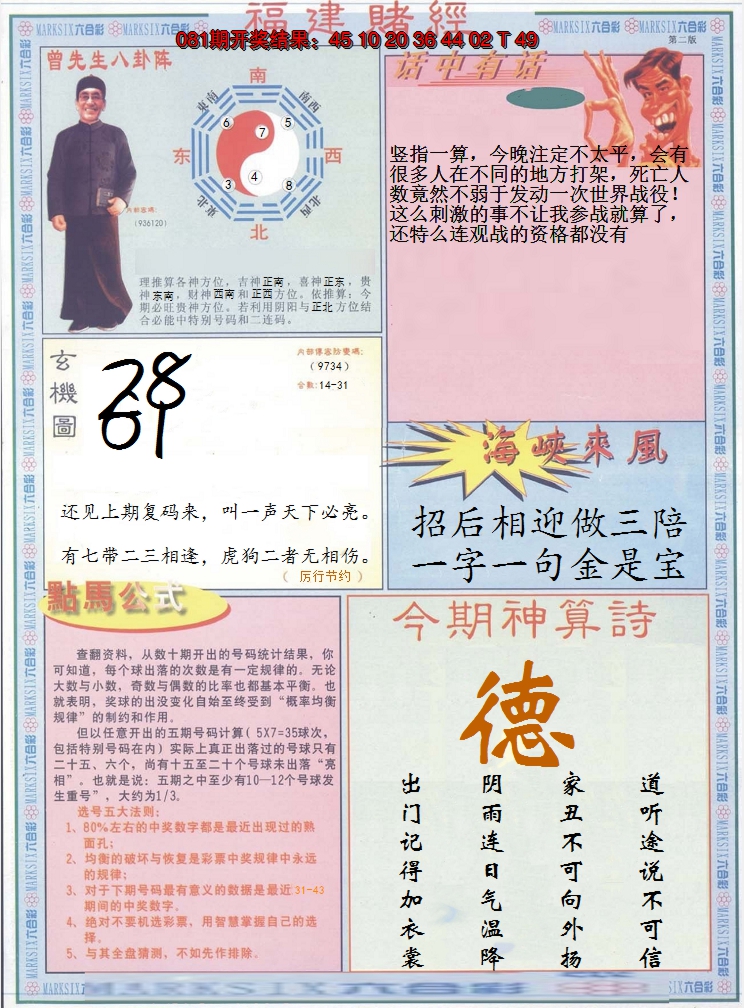 福建賭經
081期开奖结果：45 10 20 36 44 02 T 49
第二版
MARKSIX六合彩
曾先生八卦阵
南
東南
南西
6
7
5
东
西
3
4
8
東北
北西
北
内部密碼:
(936120)
理推算各神方位，吉神正南，喜神正东，贵
神东南，财神西南和正西方位。依推算：今
期必旺贵神方位。若利用阴阳与正北方位结
合必能中特别号码和二连码。
话中有话
竖指一算，今晚注定不太平，会有
很多人在不同的地方打架，死亡人
数竟然不弱于发动一次世界战役！
这么刺激的事不让我参战就算了，
还特么连观战的资格都没有
玄機圖
28
61
（9734）
合数:14-31
还见上期复码来，叫一声天下必亮。
有七带二三相逢，虎狗二者无相伤。
（ 厉行节约 ）
海峽來風
招后相迎做三陪
一字一句金是宝
點馬公式
查翻资料，从数十期开出的号码统计结果，你
可知道，每个球出落的次数是有一定规律的。无论
大数与小数，奇数与偶数的比率也都基本平衡。也
就表明，奖球的出没变化自始至终受到“概率均衡
规律”的制约和作用。
但以任意开出的五期号码计算( 5X7=35球次，
包括特别号码在内) 实际上真正出落过的号球只有
二十五、六个，尚有十五至二十个号球未出落“亮
相”。也就是说：五期之中至少有10—12个号球发
生重号”，大约为1/3。
选号五大法则：
1、80%左右的中奖数字都是最近出现过的熟
面孔；
2、均衡的破坏与恢复是彩票中奖规律中永远
的规律；
3、对于下期号码最有意义的数据是最近31-43
期间的中奖数字。
4、绝对不要机选彩票，用智慧掌握自己的选
择。
5、与其全盘猜测，不如先作排除。
今期神算詩
德
道听途说不可信
家丑不可向外扬
阴雨连日气温降
出门记得加衣裳